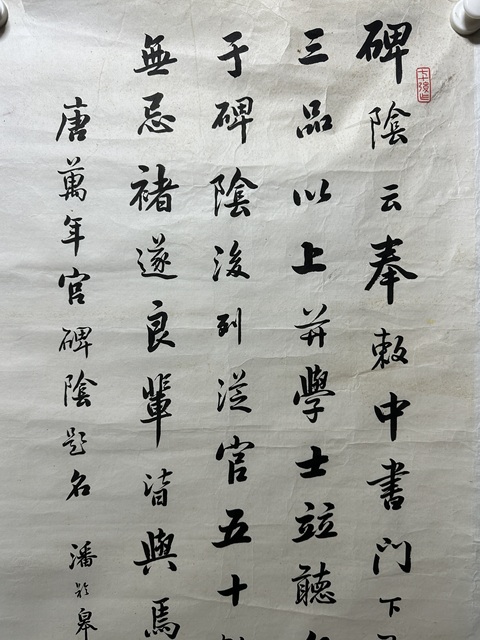 碑陰云奉敕中書門下
三品以上并學士竝聽
于碑陰後到從官五十
無忌褚遂良輩皆與焉
唐萬年宮碑陰題名 潘齡皋